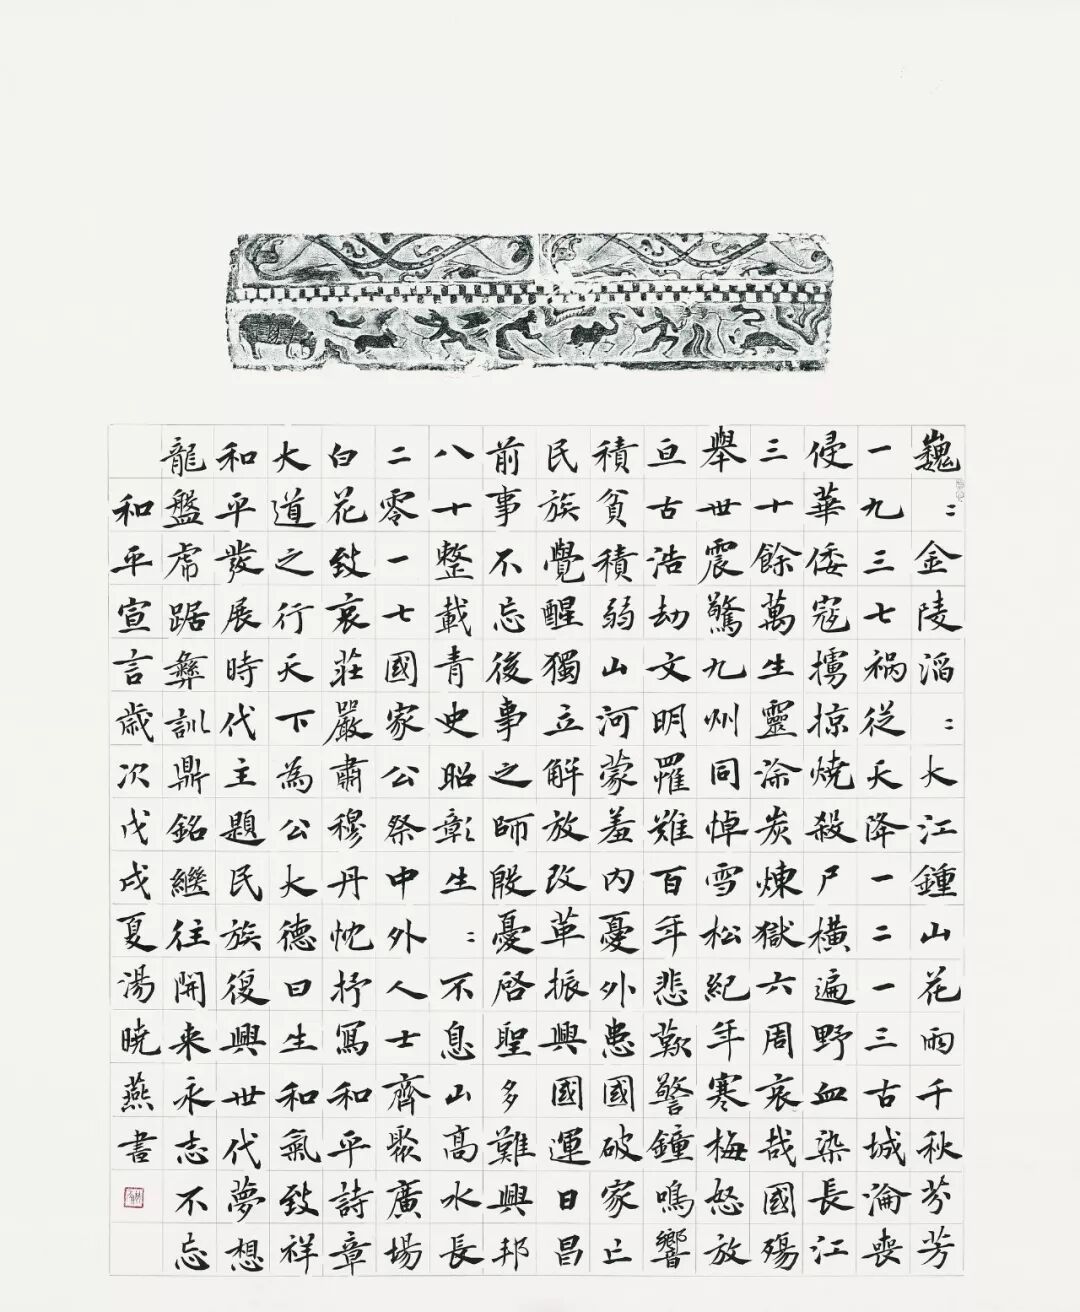 巍：金陵滔：大江鍾山花雨千秋芬芳
一九三七祸從天降一二一三古城淪喪
侵華倭寇擄掠燒殺尸橫遍野血染長江
三十餘萬生靈涂炭煉獄六周哀哉國殤
舉世震驚九州同悼雪松紀年寒梅怒放
亘古浩劫文明罹難百年悲歎警鐘鳴響
積貧積弱山河蒙羞內憂外患國破家亡
民族覺醒獨立解放改革振興國運日昌
前事不忘後事之師殷憂啓聖多難興邦
八十整載青史昭彰生：不息山高水長
二零一七國家公祭中外人士齊聚廣場
白花致哀莊嚴肅穆丹忱抒寫和平詩章
大道之行天下為公大德曰生和氣致祥
和平發展時代主題民族復興世代夢想
龍盤虎踞彝訓鼎銘繼往開来永志不忘
和平宣言歲次戊戌夏湯曉燕書